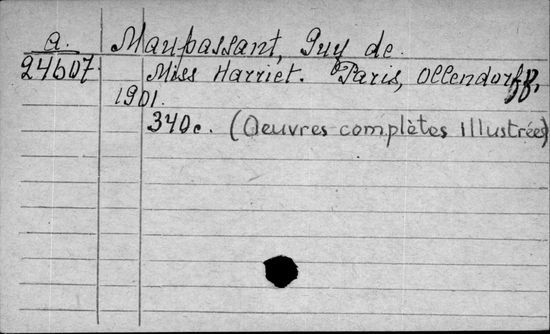 a. Maupassant, Guy de.
24607 Miss Harriet. Paris, Ollendorff,
1901.
340c. (Oeuvres complètes illustrées)